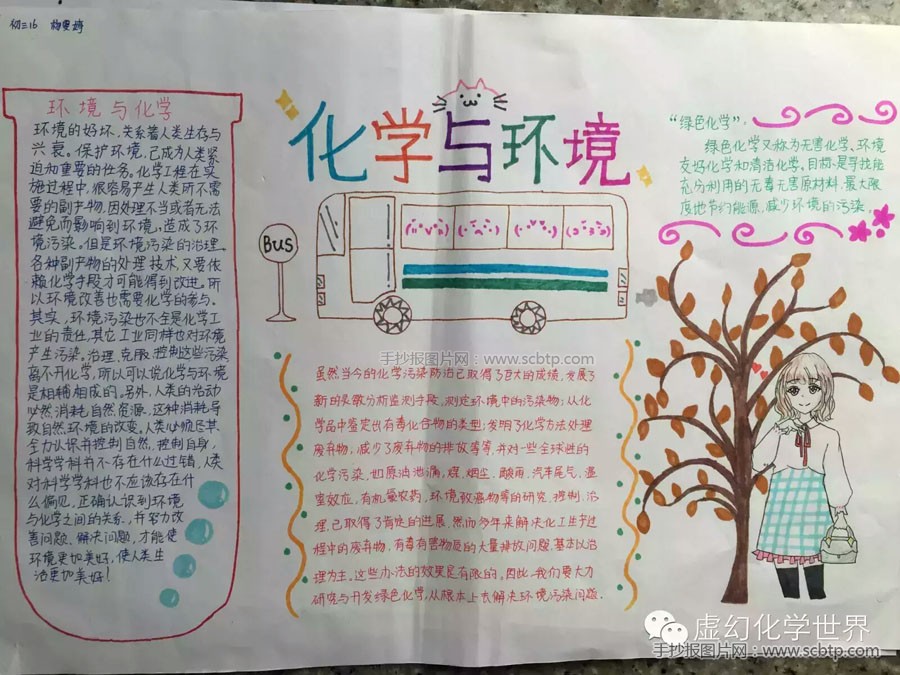 初三16
化学与环境
环境与化学
环境的好坏,关系着人类生存与
兴衰。保护环境,已成为人类紧
迫和重要的任务。化学工程在实
施过程中,很容易产生人类所不需
要的副产物,因处理不当或者无法
避免而影响到环境,造成了环
境污染。但是环境污染的治理。
各种副产物的处理技术,又要依
赖化学手段才可能得到改进。所
以环境改善也需要化学的参与。
其实,环境污染也不全是化学工
业的责任,其它工业同样也对环境
产生污染。治理,克服,控制这些污染
离不开化学,所以可以说化学与环境
是相辅相成的。另外,人类的活动
必然消耗自然资源,这种消耗导
致自然环境的改变。人类必须尽其
全力认识并控制自然,控制自身,
科学学科并不存在什么过错,人类
对科学学科也不应该存在什
么偏见,正确认识到环境
与化学之间的关系,并努力改
善问题、解决问题,才能使
环境更加美好,使人类生
活更加美好!
Bus
虽然当今的化学污染防治已取得了巨大的成绩,发展了
新的灵敏分析监测手段,测定环境中的污染物;从化
学品中鉴定出有毒化合物的类型;发明了化学方法处理
废弃物;减少了废弃物的排放等等,并对一些全球性的
化学污染,如原油泄漏,煤,烟尘,酸雨,汽车尾气,温
室效应,有机氯农药,环境致癌物等的研究,控制,治
理,已取得了肯定的进展,然而多年来解决化工生产过
程中的废弃物,有毒有害物质的大量排放问题,基本以治
理为主。这些办法的效果是有限的,因此,我们要大力
研究与开发绿色化学,从根本上去解决环境污染问题。
“绿色化学”:
绿色化学又称为无害化学、环境
友好化学和清洁化学。目标是寻找能
充分利用的无毒无害原材料,最大限
度地节约能源,减少环境的污染
手抄报图片网:www.scbtp.com
虚幻化学世界
手抄报图片网:www.scbtp.com